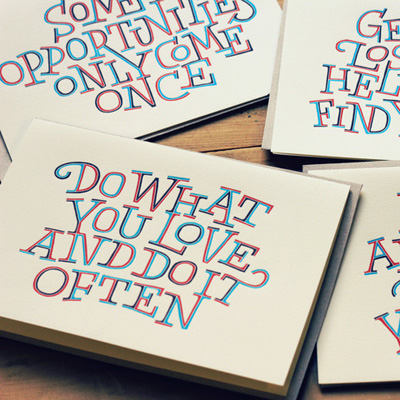 SOME
OPPORTUNITIES
ONLY COME
ONCE
GE
LO
HEL
FIND Y
DO WHAT
YOU LOVE
AND DO IT
OFTEN